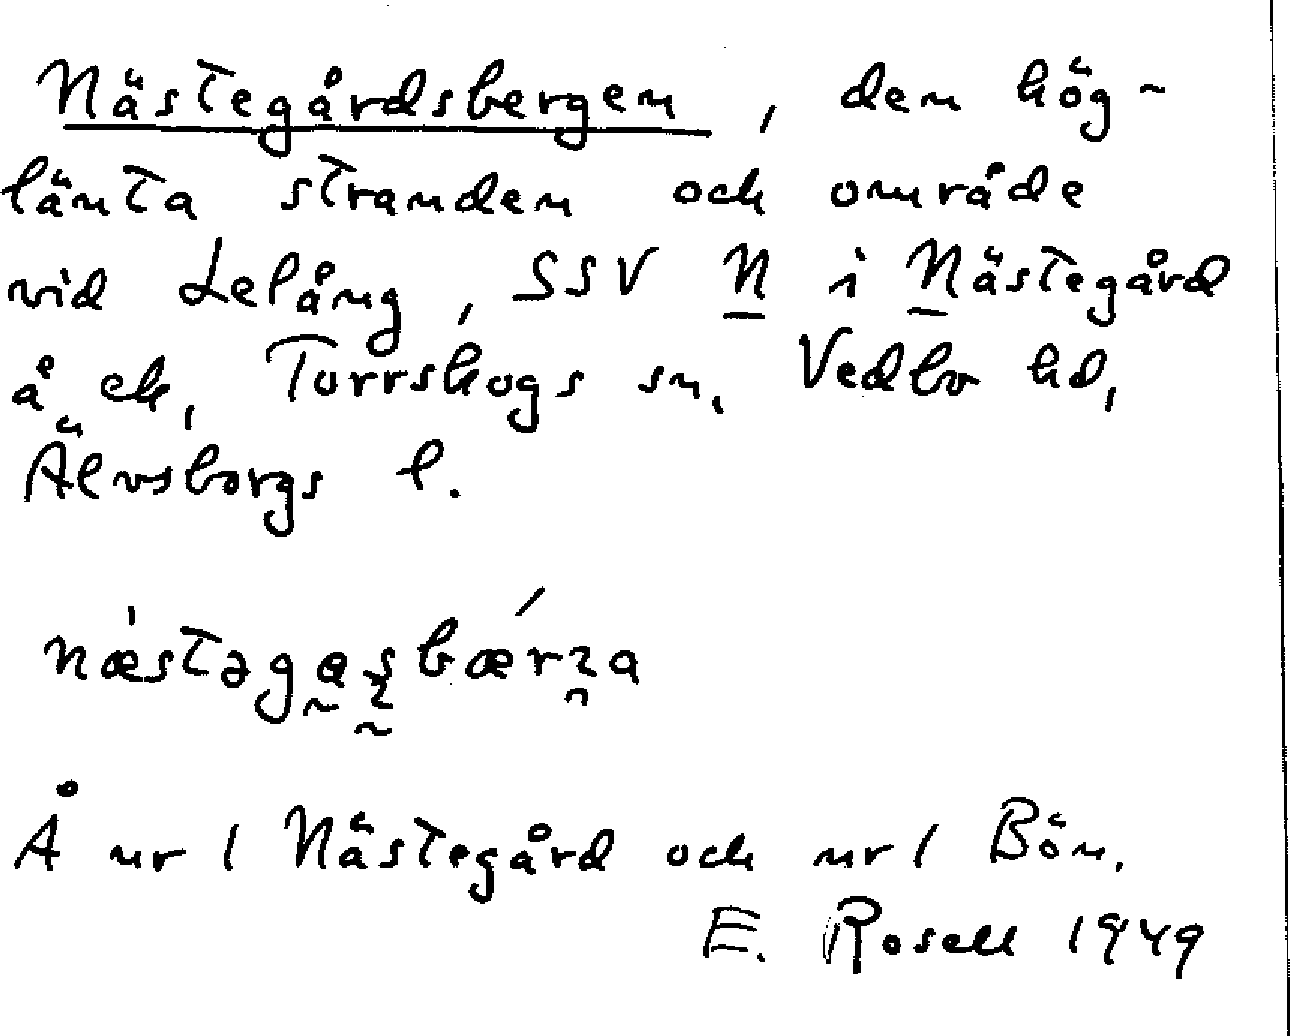 Nästegårdsbergen, den hög-
länta stranden och område
vid Lelång, SSV N i Nästegård
å ek, Torrskogs sn, Vedbo hd,
Älvsborgs l.
Å nr 1 Nästegård och nr 1 Bön.
E. Rosell 1949